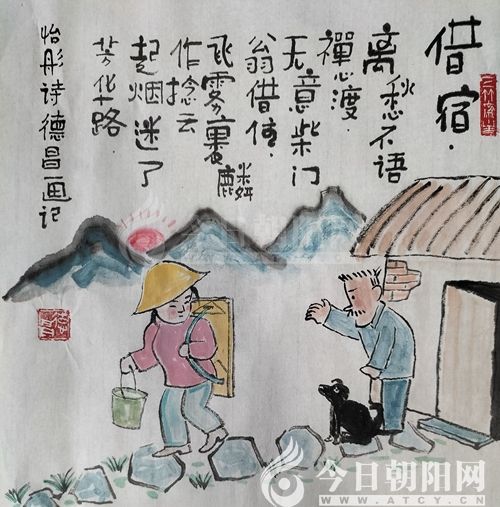 借宿·
离愁不语
禪心渡·
无意柴门
翁借住·
飞雾裹麟
作捻云
起烟迷了
芳华路
怡彤诗德昌画记
今日朝阳网
今日朝阳网
WWW.ATCY.COM